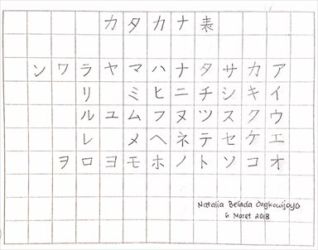 カタカナ表
ンワラヤマハナタサカア
リミヒニチシキイ
ルユムフヌツスクウ
レメヘネテセケエ
ヲロヨモホノトソコオ
Natalia
6 Maret 2018